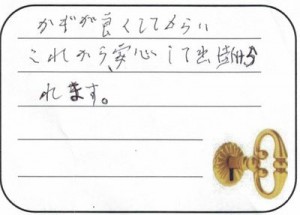 かぎが良くしてもらい
これから安心して出掛ら
れます。